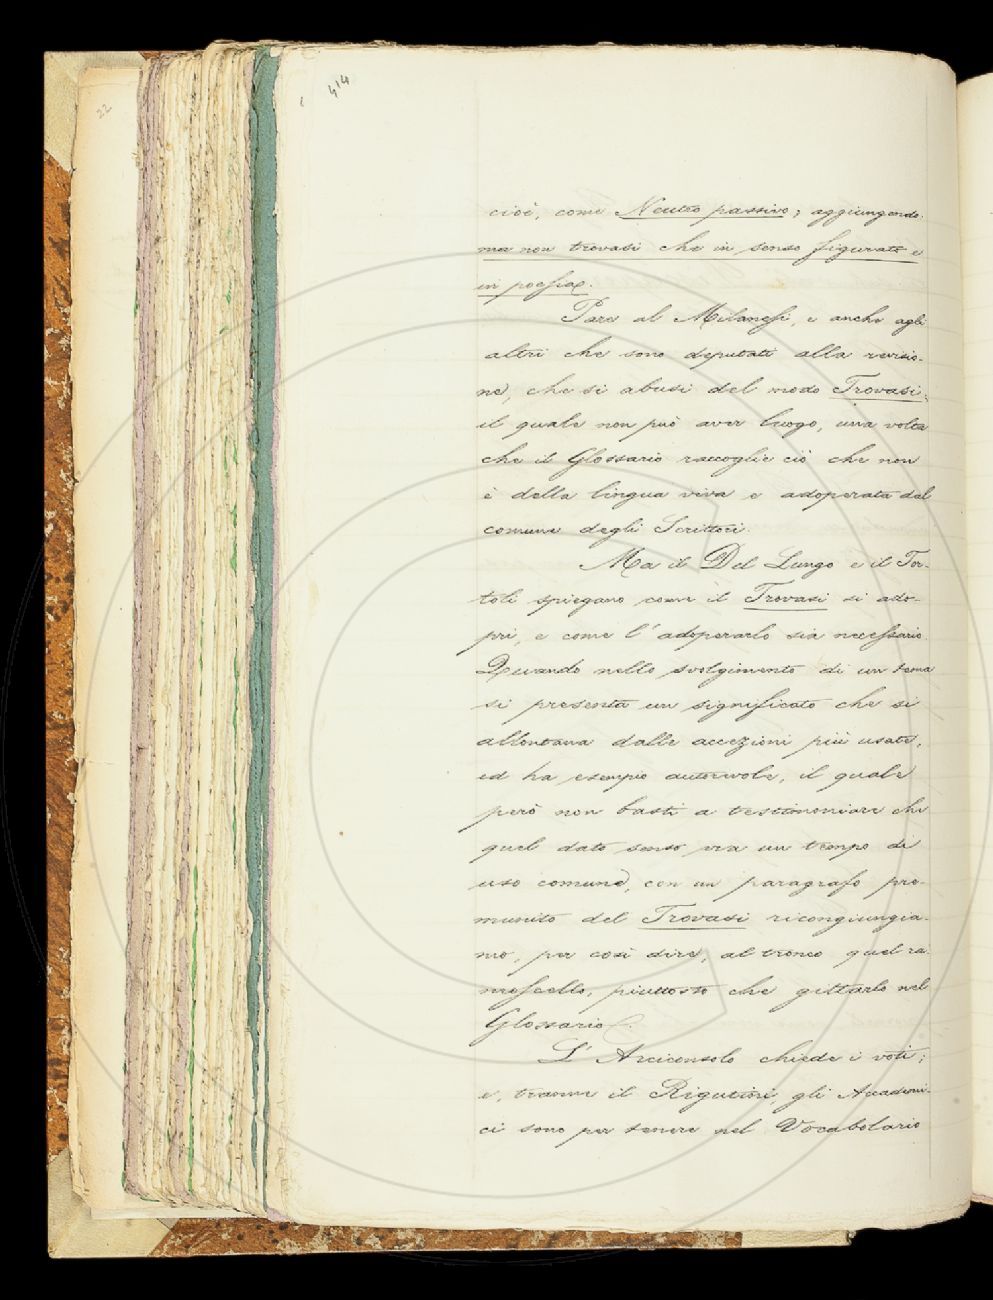 414
22
cioè, come Neutro passivo; aggiungendo:
ma non trovasi che in senso figurato e
in poesia.
Pare al Milanesi, e anche agli
altri che sono deputati alla revisio-
ne, che si abusi del modo Trovasi;
il quale non può aver luogo, una volta
che il Glossario raccoglie ciò che non
è della lingua viva e adoperata dal
comune degli Scrittori.
Ma il Del Lungo e il Tor-
toli spiegano come il Trovasi si ado-
pri, e come l'adoperarlo sia necessario.
Quando nello svolgimento di un tema
si presenta un significato che si
allontana dalle accezioni più usate,
ed ha esempio autorevole, il quale
però non basti a testimoniare che
quel dato senso era un tempo di
uso comune, con un paragrafo pre-
munito del Trovasi ricongiungia-
mo, per così dire, al tronco quel ra-
moscello, piuttosto che gittarlo nel
Glossario.
L'Arciconsolo chiede i voti;
e, tranne il Rigutini, gli Accademi-
ci sono per tenere nel Vocabolario